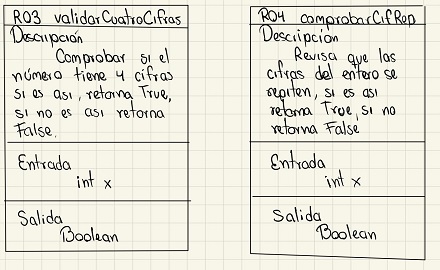 R03 validarCuatroCifras
Descripción
Comprobar si el
número tiene 4 cifras
si es asi, retorna True,
si no es asi retorna
False.
Entrada
int x
Salida
Boolean
R04 comprobarCifRep
Descripción
Revisa que las
cifras del entero se
repitan, si es asi
retorna True, si no
retorna False
Entrada
int x
Salida
Boolean